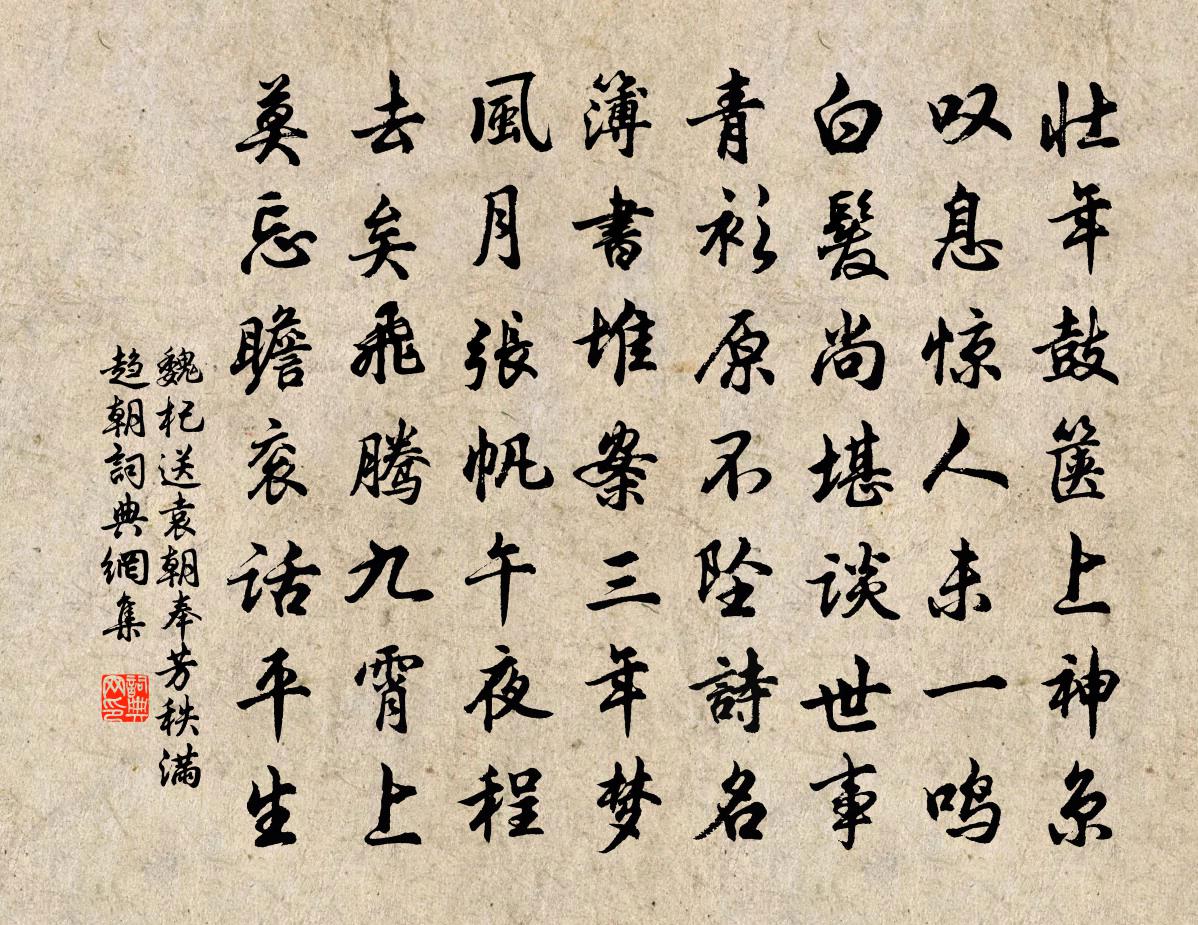 壮年鼓箧上神京
叹息惊人未一鸣
白髮尚堪谈世事
青衫原不坠詩名
簿書堆案三年梦
風月張帆午夜程
去矣飛腾九霄上
莫忘瞻衮话平生
魏杞送袁朝奉芳秩滿
趋朝詞典網集
詞典网印